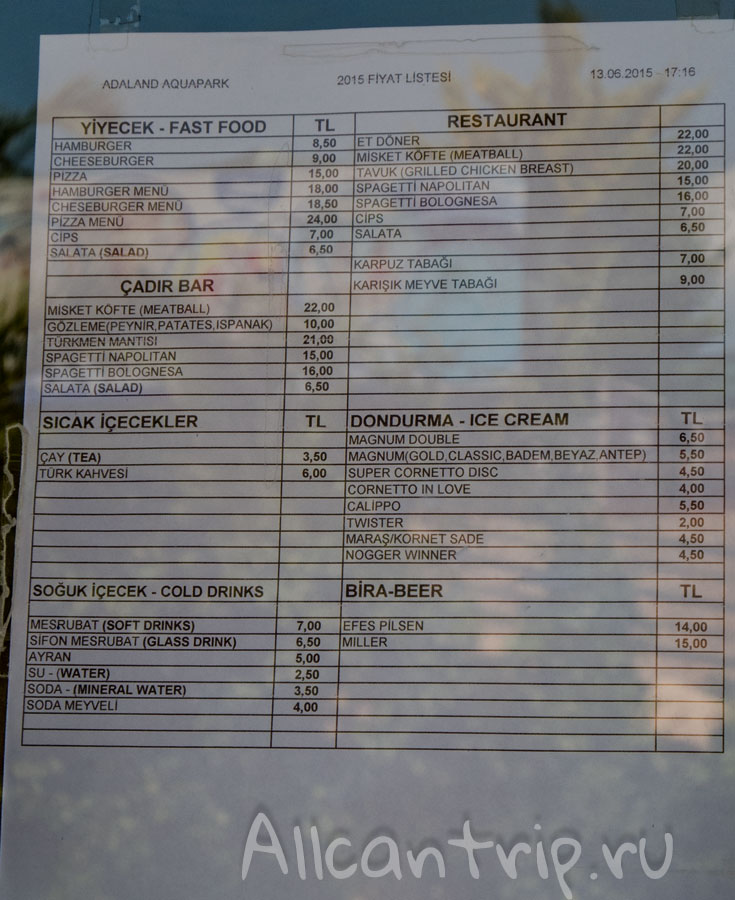 ADALAND AQUAPARK 2015 FİYAT LİSTESİ 13.06.2015 - 17:16
YİYECEK - FAST FOOD TL
HAMBURGER 8,50
CHEESEBURGER 9,00
PİZZA 15,00
HAMBURGER MENÜ 18,00
CHESEBURGER MENÜ 18,50
PİZZA MENÜ 24,00
CİPS 7,00
SALATA (SALAD) 6,50
RESTAURANT
ET DÖNER 22,00
MİSKET KÖFTE (MEATBALL) 22,00
TAVUK (GRILLED CHICKEN BREAST) 20,00
SPAGETTİ NAPOLITAN 15,00
SPAGETTİ BOLOGNESA 16,00
CİPS 7,00
SALATA 6,50
KARPUZ TABAĞI 7,00
KARIŞIK MEYVE TABAĞI 9,00
ÇADIR BAR
MİSKET KÖFTE (MEATBALL) 22,00
GÖZLEME(PEYNİR,PATATES,ISPANAK) 10,00
TÜRKMEN MANTISI 21,00
SPAGETTİ NAPOLITAN 15,00
SPAGETTİ BOLOGNESA 16,00
SALATA (SALAD) 6,50
SICAK İÇECEKLER TL
ÇAY (TEA) 3,50
TÜRK KAHVESİ 6,00
DONDURMA - ICE CREAM TL
MAGNUM DOUBLE 6,50
MAGNUM(GOLD,CLASSIC,BADEM,BEYAZ,ANTEP) 5,50
SUPER CORNETTO DISC 4,50
CORNETTO IN LOVE 4,00
CALİPPO 5,50
TWISTER 2,00
MARAŞ/KORNET SADE 4,50
NOGGER WINNER 4,50
SOĞUK İÇECEK - COLD DRINKS
MEŞRUBAT (SOFT DRINKS) 7,00
SİFON MEŞRUBAT (GLASS DRINK) 6,50
AYRAN 5,00
SU - (WATER) 2,50
SODA - (MINERAL WATER) 3,50
SODA MEYVELİ 4,00
BİRA-BEER TL
EFES PİLSEN 14,00
MILLER 15,00
Allcantrip.ru